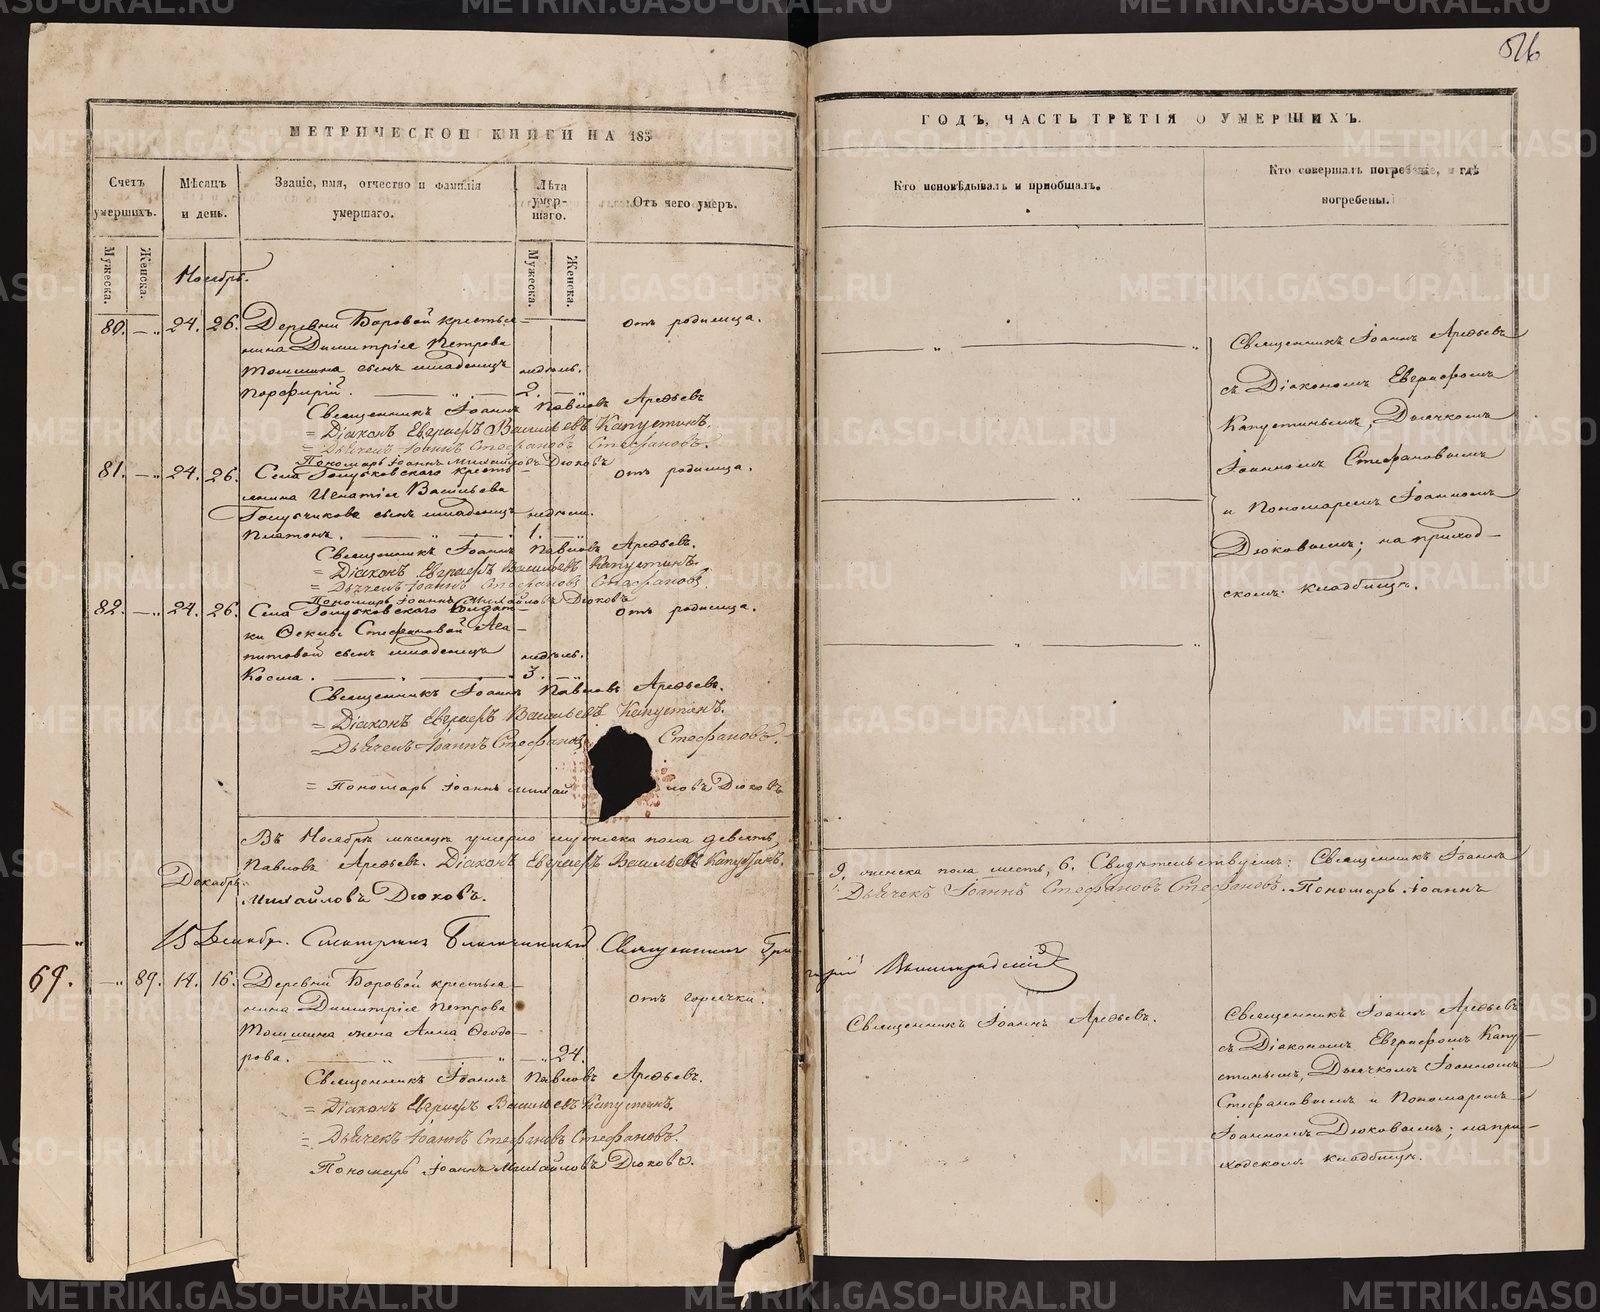 526
МЕТРИЧЕСКОЙ КНИГИ НА 185
ГОДЪ, ЧАСТЬ ТРЕТІЯ О УМЕРШИХЪ.
Счетъ умершихъ.
Мѣсяцъ и день.
Званіе, имя, отчество и фамилія умершаго.
Лѣта умер-шаго.
Отъ чего умеръ.
Кто исповѣдывалъ и пріобщалъ.
Кто совершалъ погребеніе, и гдѣ погребены.
Мужеска.
Женска.
Мужеска.
Женска.
Ноябрь.
80. — „ 24. 26. Деревни Боровой крестья-
нина Димитрія Петрова
Томшина сынъ младенецъ недѣль.
Порфирій. 2.
отъ родимца.
Священникъ Іоаннъ Павловъ Арефьевъ
= Діаконъ Евграфъ Васильевъ Капустинъ.
= Дьячекъ Іоаннъ Стефановъ Стефановъ.
Пономарь Іоаннъ Михайловъ Дюковъ
81. — „ 24. 26. Села Голубковскаго кресть-
янина Игнатія Васильева
Голубчикова сынъ младенецъ недѣли.
Платонъ. 1.
отъ родимца.
Священникъ Іоаннъ Павловъ Арефьевъ.
= Діаконъ Евграфъ Васильевъ Капустинъ.
= Дьячекъ Іоаннъ Стефановъ Стефановъ.
Пономарь Іоаннъ Михайловъ Дюковъ
82. — „ 24. 26. Села Голубковскаго солдат-
ки Феклы Стефановой Ага-
питовой сынъ младенецъ недѣль.
Косма. 3.
отъ родимца.
Священникъ Іоаннъ Павловъ Арефьевъ.
= Діаконъ Евграфъ Васильевъ Капустинъ.
Дьячекъ Іоаннъ Стефановъ Стефановъ.
= Пономарь Іоаннъ Михай ловъ Дюковъ
Священникъ Іоаннъ Арефьевъ
съ Діакономъ Евграфомъ
Капустинымъ, Дьячкомъ
Іоанномъ Стефановымъ
и Пономаремъ Іоанномъ
Дюковымъ; на приход-
скомъ кладбищѣ.
Въ Ноябрѣ мѣсяцѣ умерло мужеска пола девять,
9, женска пола шесть, 6. Свидѣтельствуемъ: Священникъ Іоаннъ
Павловъ Арефьевъ. Діаконъ Евграфъ Васильевъ Капустинъ.
Дьячекъ Іоаннъ Стефановъ Стефановъ. Пономарь Іоаннъ
Михайловъ Дюковъ.
Декабрь.
15 Декабр. Смотрѣлъ Благочинный Священникъ Гри
горій
69.
— „ 89. 14. 16. Деревни Боровой крестья-
нина Димитрія Петрова
Томшина жена Анна Ѳеодо-
рова. — „ 24.
отъ горячки.
Священникъ Іоаннъ Павловъ Арефьевъ.
= Діаконъ Евграфъ Васильевъ Капустинъ.
= Дьячекъ Іоаннъ Стефановъ Стефановъ.
Пономарь Іоаннъ Михайловъ Дюковъ.
Священникъ Іоаннъ Арефьевъ.
Священникъ Іоаннъ Арефьевъ
съ Діакономъ Евграфомъ Капу-
стинымъ, Дьячкомъ Іоанномъ
Стефановымъ и Пономаремъ
Іоанномъ Дюковымъ; на при-
ходскомъ кладбищѣ.
METRIKI.GASO-URAL.RU